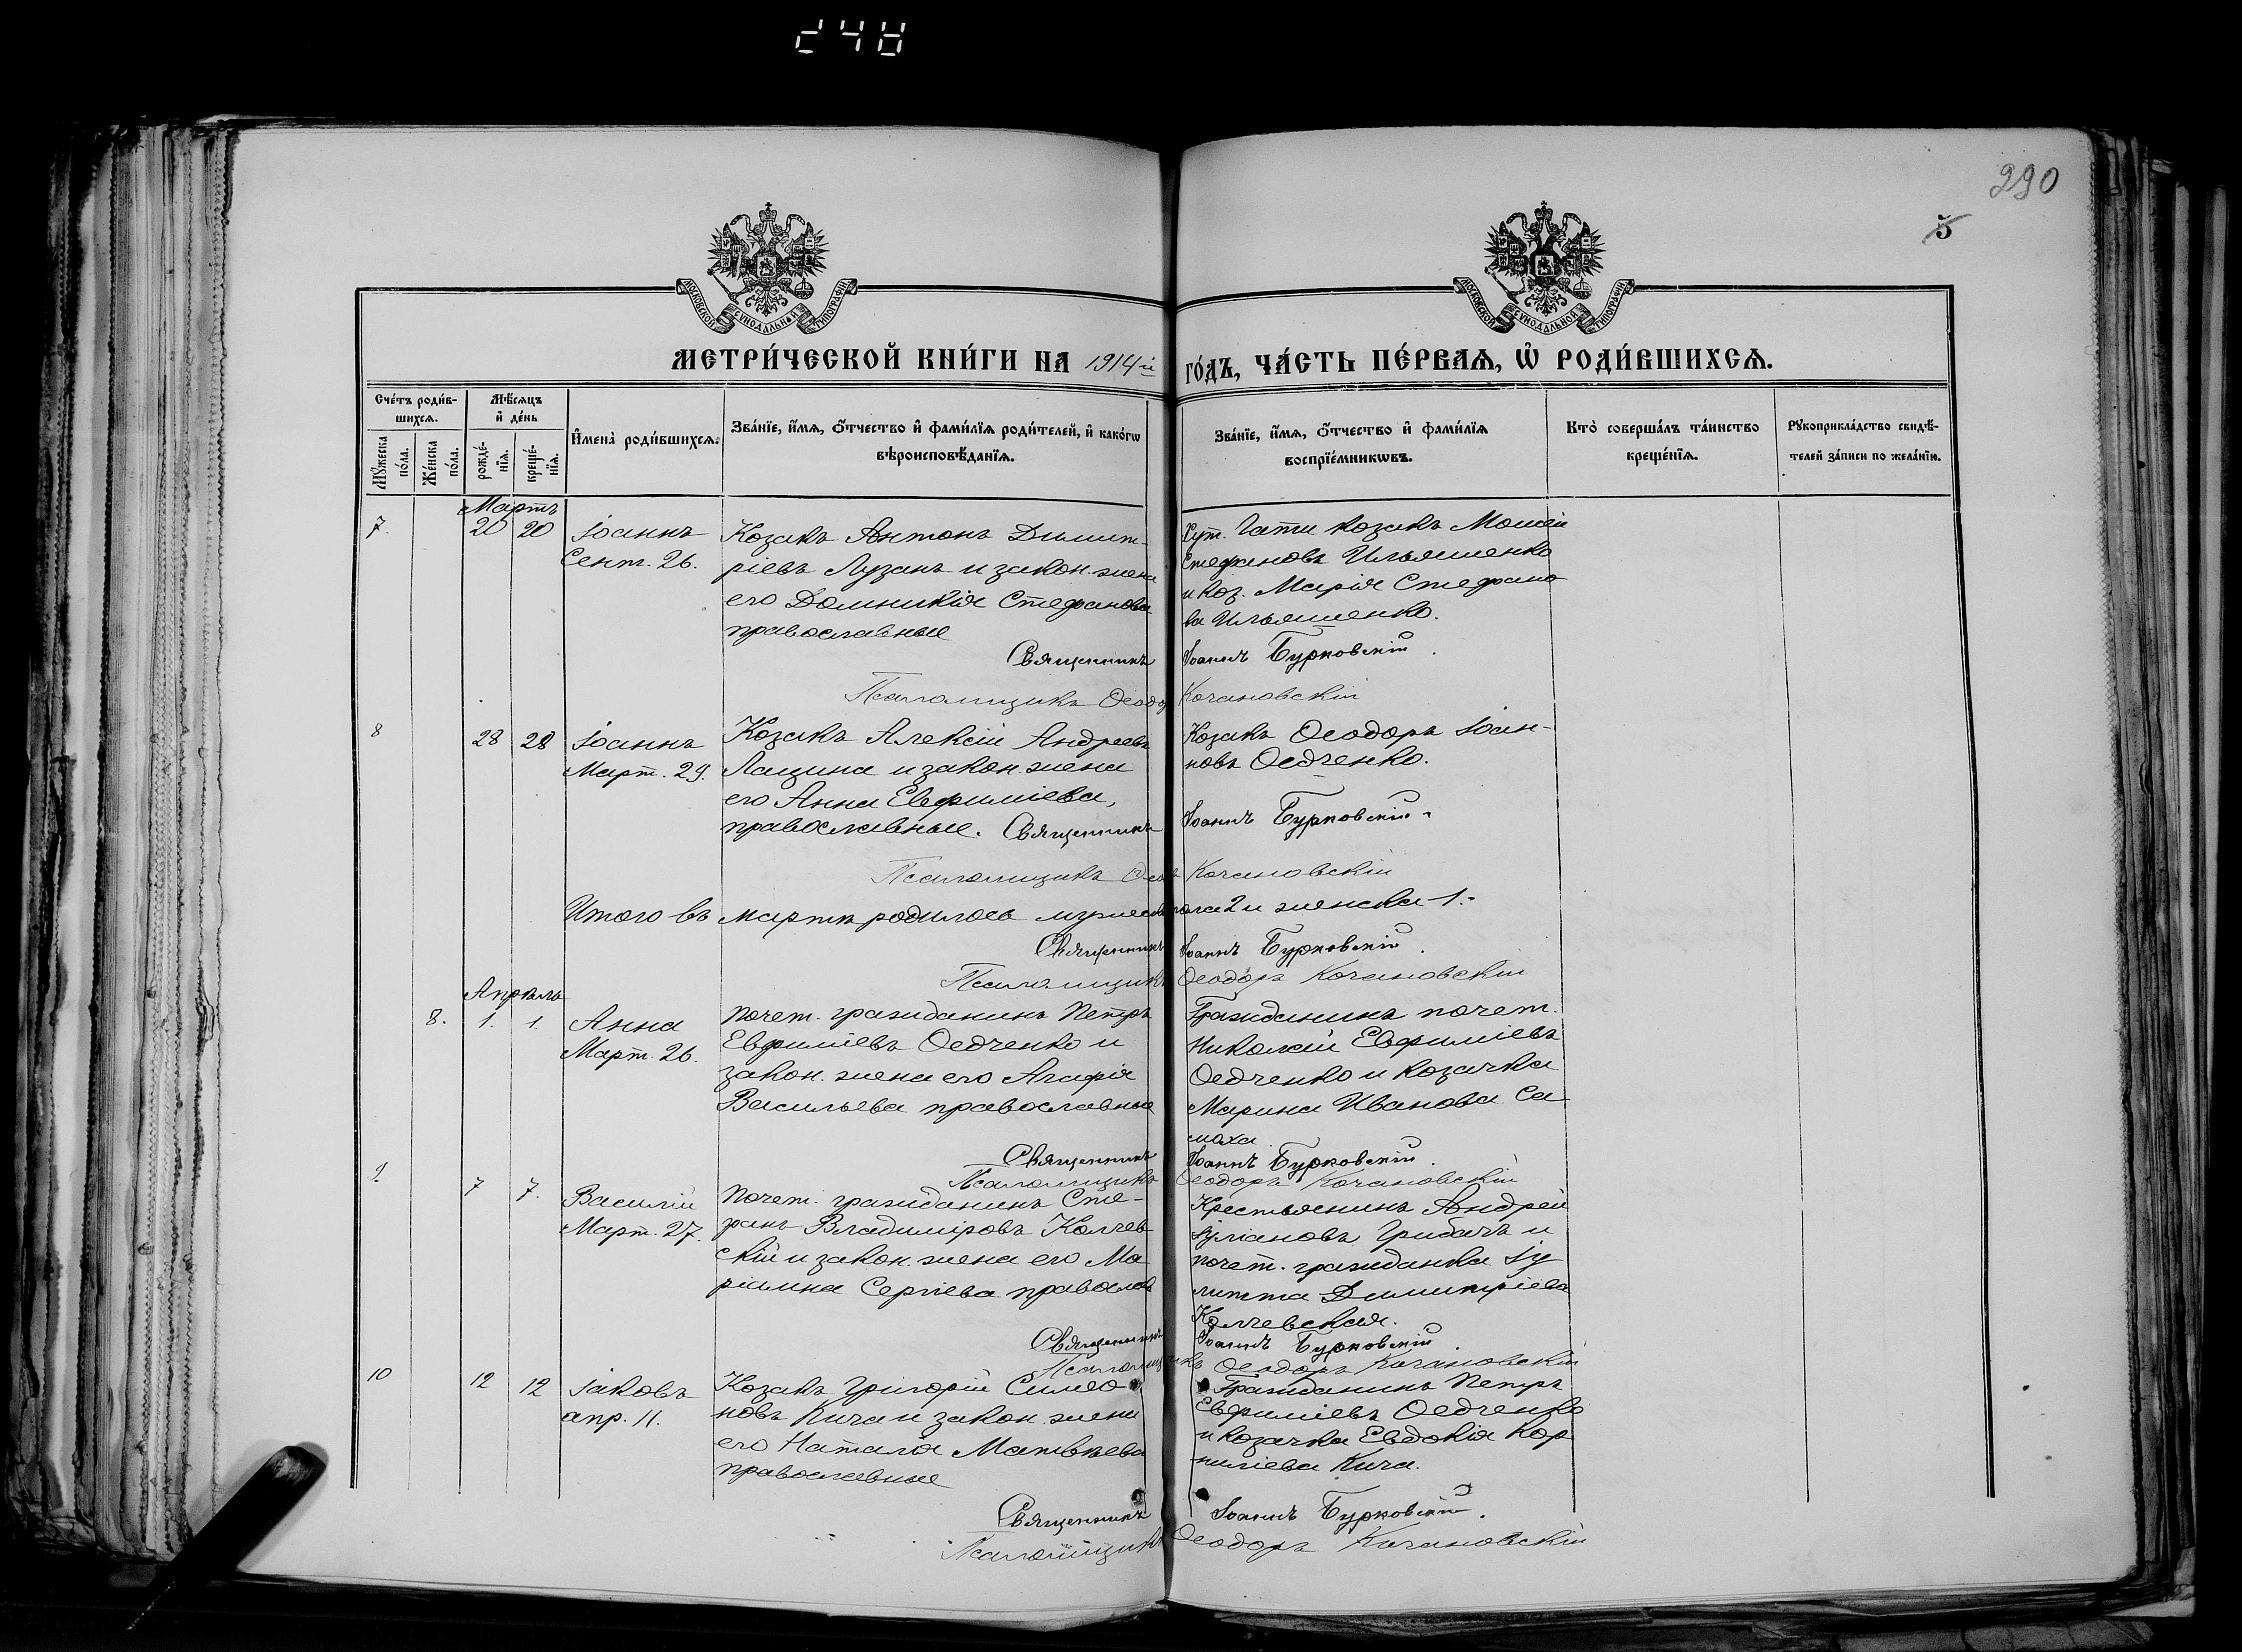 290
5
МОСКОВСКОЙ СУНОДАЛЬНОЙ ТИПОГРАФІИ
МОСКОВСКОЙ СУНОДАЛЬНОЙ ТИПОГРАФІИ
МЕТРИ́ЧЕСКОЙ КНИ́ГИ НА 1914й го́дъ, ЧА́СТЬ ПЕ́РВАѦ, Ѡ҆ РОДИ́ВШИХСѦ.
Сче́тъ роди́в-
шихсѧ.
Мꙋ́жеска по́ла.
Же́нска по́ла.
Мѣ́сѧцъ
и҆ де́нь
рожде́-
нїѧ.
креще́-
нїѧ.
И҆мена̀ роди́вшихсѧ.
Зва́нїе, и҆́мѧ, ѻ҆́тчество и҆ фами́лїѧ роди́телей, и҆ како́гѡ
вѣроисповѣ́данїѧ.
Зва́нїе, и҆́мѧ, ѻ҆́тчество и҆ фами́лїѧ
воспрїе́мникѡвъ.
Кто̀ соверша́лъ та́инство
креще́нїѧ.
Рꙋкоприкла́дство свидѣ́-
телей за́писи по жела́нїю.
Мартъ
7. 20 20 Іоаннъ
Сент. 26.
Козакъ Антонъ Димит-
ріевъ Лузанъ и закон. жена
его Домникія Стефанова
православные
Хут. Гати козакъ Моисей
Стефановъ Ильяшенко
и коз. Марія Стефано
ва Ильяшенко.
Священникъ Іоаннъ Бурковскій.
Псаломщикъ Ѳеодоръ Кочановскій
8 28 28 Іоаннъ
Март. 29.
Козакъ Алексій Андреевъ
Лацина и закон. жена
его Анна Евфиміева,
православные.
Козакъ Ѳеодоръ Іоан-
новъ Ѳедченко.
Священникъ Іоаннъ Бурковскій.
Псаломщикъ Ѳеод Кочановскій
Итого въ мартѣ родилось мужеска пола 2 и женска 1.
Священникъ Іоаннъ Бурковскій.
Псаломщикъ Ѳеодоръ Кочановскій
Апрѣль
8. 1. 1. Анна
Март. 26.
Почет. гражданинъ Петръ
Евфиміевъ Ѳедченко и
закон. жена его Агафія
Васильева православные
Гражданинъ почет.
Николай Евфиміевъ
Ѳедченко и козачка
Марина Иванова Са
моха.
Священникъ Іоаннъ Бурковскій.
Псаломщикъ Ѳеодоръ Кочановскій
9 7 7. Василій
Март. 27.
Почет. гражданинъ Сте-
фанъ Владиміровъ Колчев
скій и закон. жена его Ма
ріамна Сергіева православ
Крестьянинъ Андрей
Іуліановъ Грибачъ и
почет. гражданка Іу
литта Димитріева
Колчевская.
Священникъ Іоаннъ Бурковскій.
Псаломщикъ Ѳеодоръ Кочановскій
10 12 12 Іаковъ
апр. 11.
Козакъ Григорій Симео
новъ Кича и закон. жена
его Наталія Матвѣева
православные
Гражданинъ Петръ
Евфиміевъ Ѳедченко
и козачка Евдокія Кор
ниліева Кича.
Священникъ Іоаннъ Бурковскій.
Псаломщикъ Ѳеодоръ Кочановскій